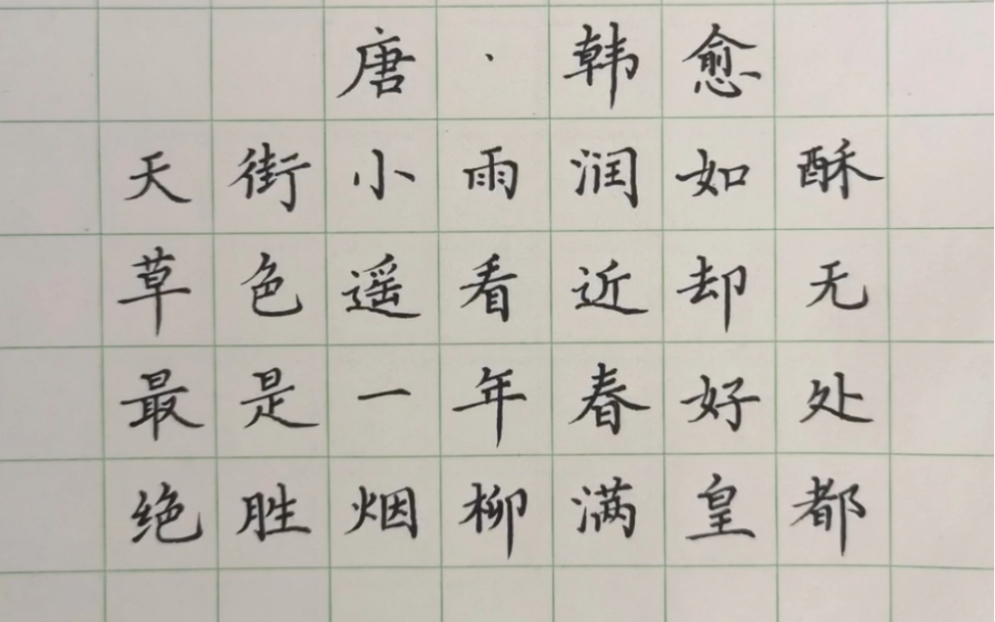 唐·韩愈
天街小雨润如酥
草色遥看近却无
最是一年春好处
绝胜烟柳满皇都